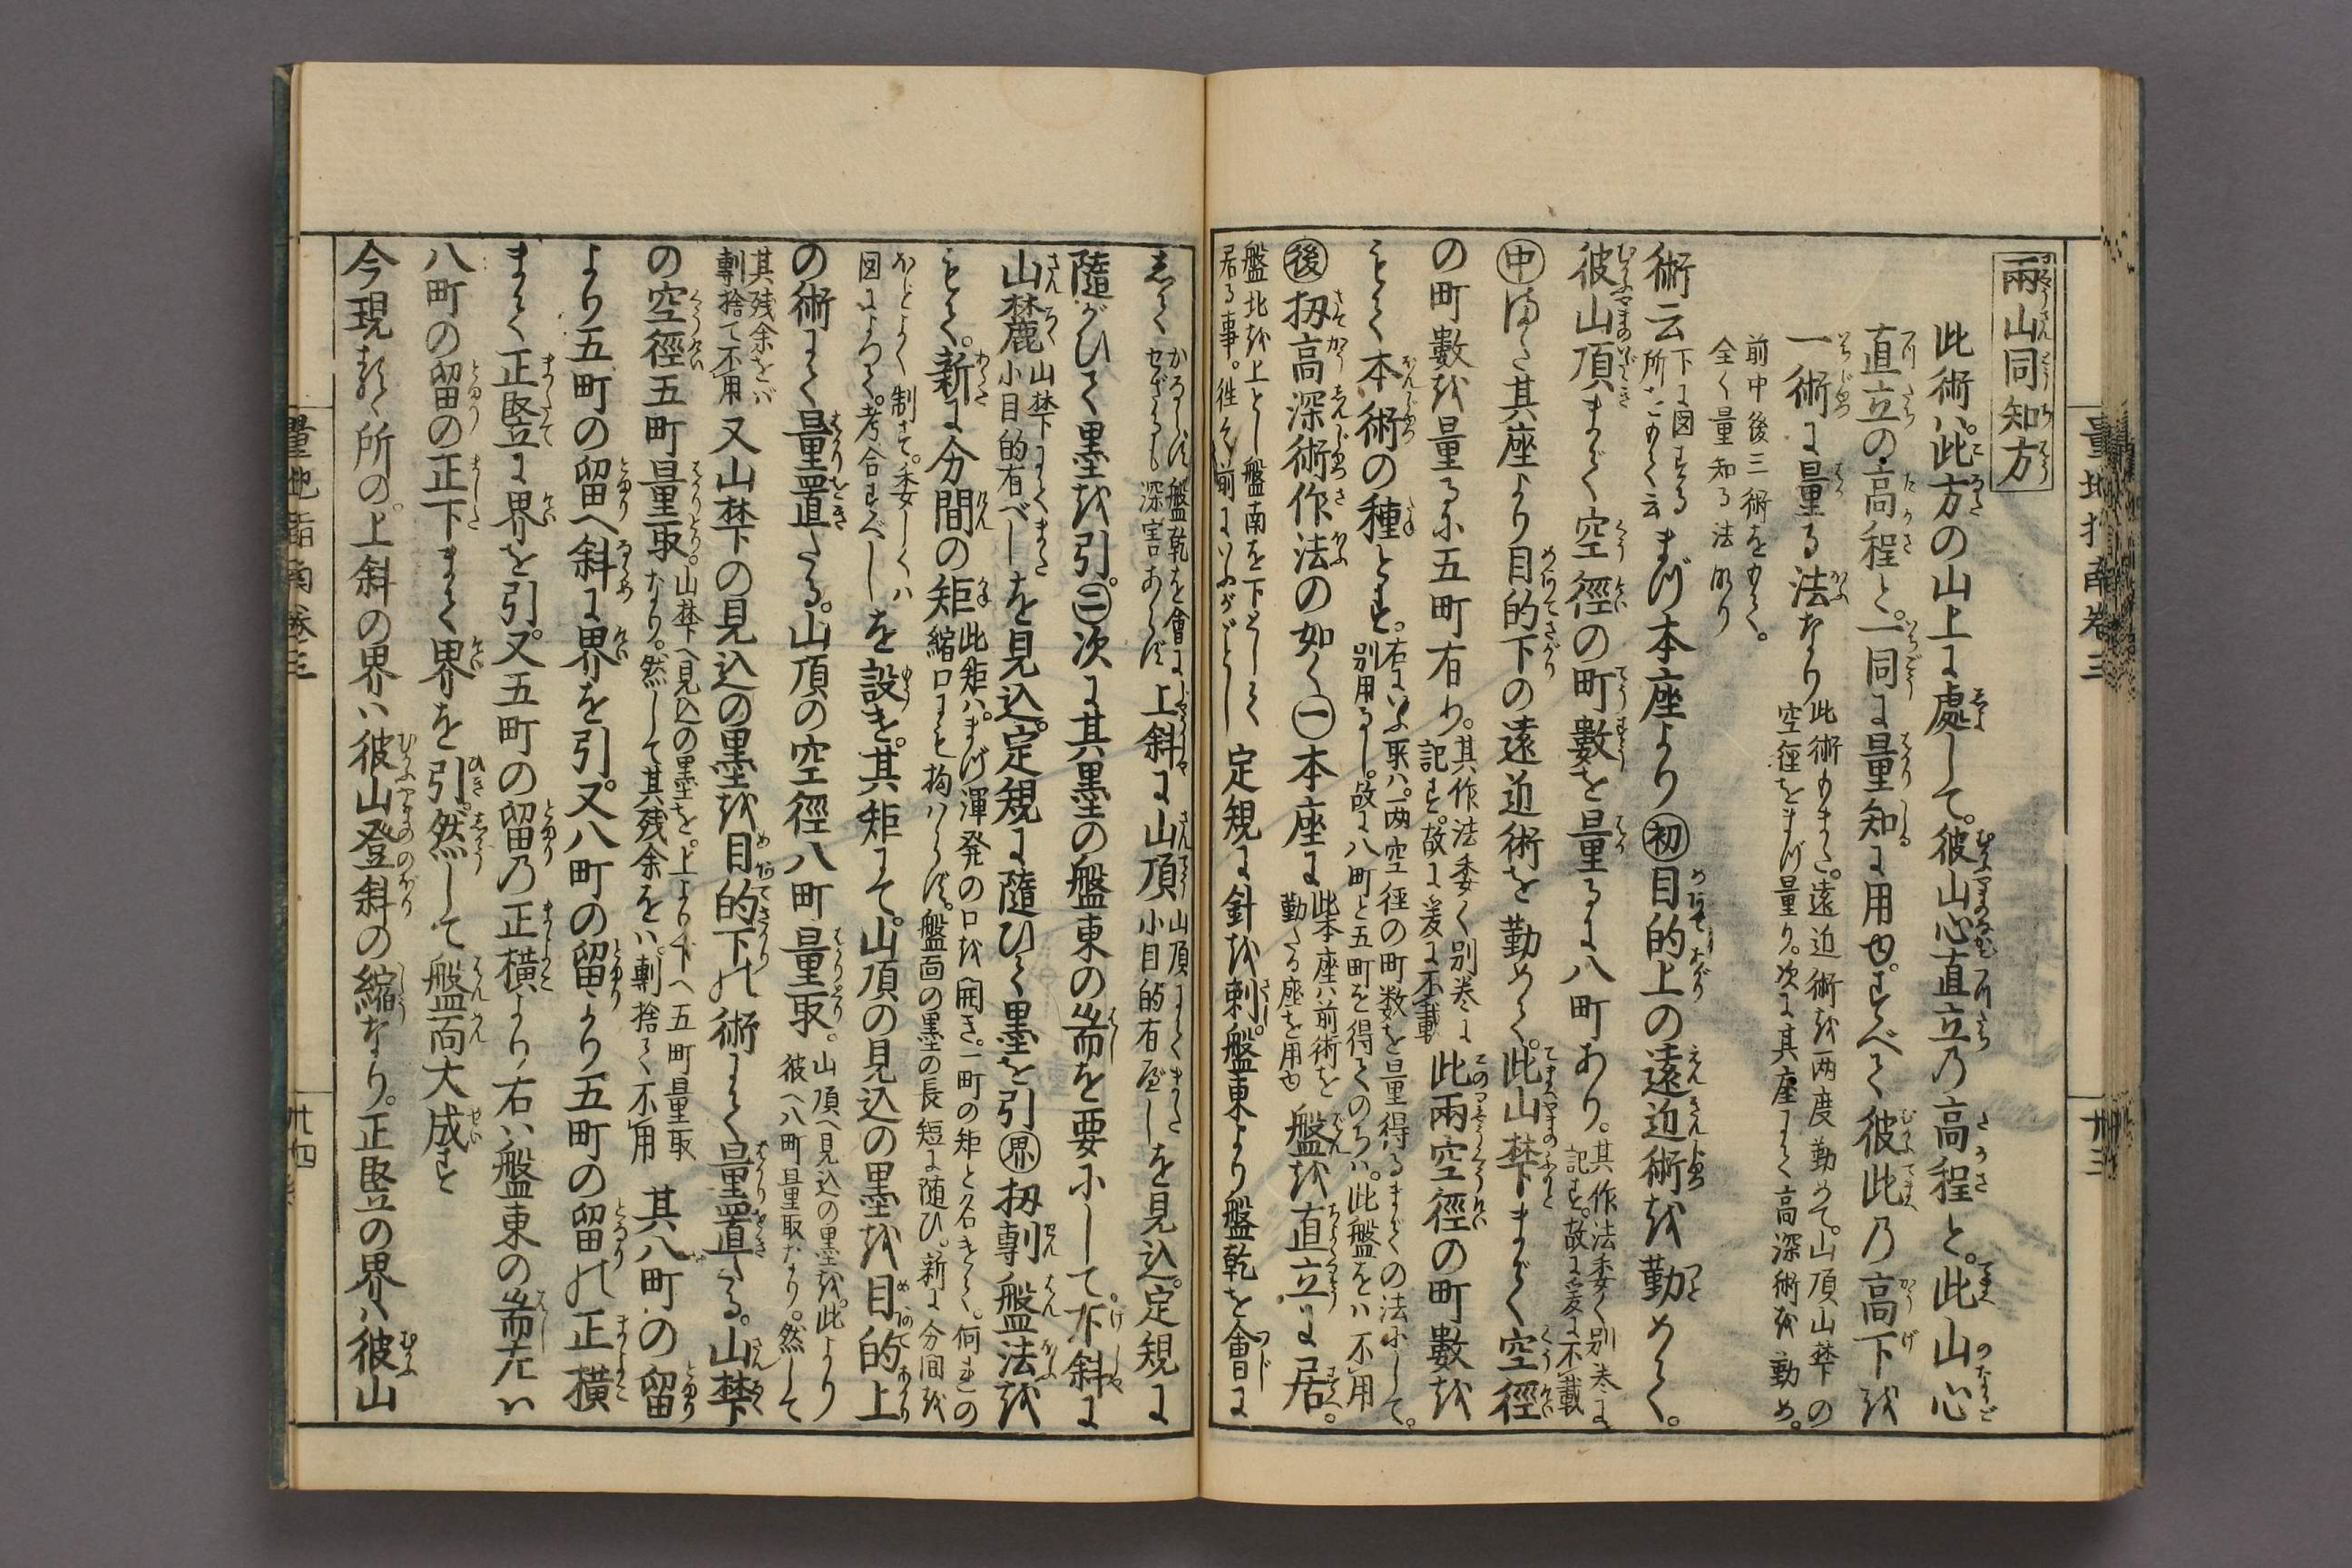 量地指南卷三
兩山同知方
此術ハ此方の山上に處して。彼山心直立乃高程と。此山心
直立の高程と。一同に量知に用ゆ。すべて彼此乃高下を
一術に量る法なり
此術もまた。遠近術を両度勤めて。山頂山禁の
空徑をまづ量り。次に其座にて高深術を勤め。
前中後三術をもて。
全く量知る法あり
術云
下に図する
所にもて云
まづ本座より初目的上の遠近術を勤めて。
彼山頂まで空徑の町數を量るに八町あり。
其作法委く別巻に
記す。故に爰に不載
中また其座より目的下の遠近術を勤めて。此山禁下まで空徑
の町數を量るに五町有り。
其作法委く別巻に
記す。故に爰に不載
此兩空徑の町數を
もて本術の種とす。
右にいふ取ハ。両空徑の町数を量得るまでの法にして。
別用るし。故に八町と五町を得てのちハ。此盤をハ不用
後扨高深術作法の如く一本座に
此本座ハ前術を
勤たる座を用ゆ
盤を直立に居。
盤北を上とし盤南を下として
居る事。往々前にいふがごとし
定規に針を刺。盤東より盤乾を會に
卅三
して
かるらず盤乾を會に
せざるも深害あらず
上斜に山頂
山頂にてまた
小目的有べし
を見込。定規に
隨がひて墨を引。二次に其墨の盤東の耑を要にして。下斜に
山麓
山禁下にてまた
小目的有べし
を見込。定規に隨ひて墨を引界扨剸盤法を
もて。新に分間の矩
此矩ハ。まづ渾発の口を開き。一町の矩と名きて。何まの
縮口にも拘ハらず。盤面の墨の長短に随ひ。新に分間を
ほどよく制さて。委しくハ
図によつて。考合すべし
を設を。其矩にて。山頂の見込の墨を目的上
の術にて量置たる。山頂の空徑八町量取。
山頂へ見込の墨を。此より
彼へ八町量取なり。然して
其残余をバ
剸捨て不用
又山禁下の見込の墨を目的下の術にて量置たる。山禁下
の空徑五町量取なり。
山禁下へ見込の墨を。上より下へ五町量取
然して其残余をハ。剸捨てく不用
其八町の留
より五町の留へ斜に界を引。又八町の留より五町の留の正橫
まて正竪に界を引。又五町の留乃正橫より右ハ盤東の耑左ハ
八町の留の正下まて界を引。然して盤面大成す
今現るゝ所の。上斜の界ハ彼山登斜の縮なり。正竪の界ハ彼山
量地指南卷三
卅四